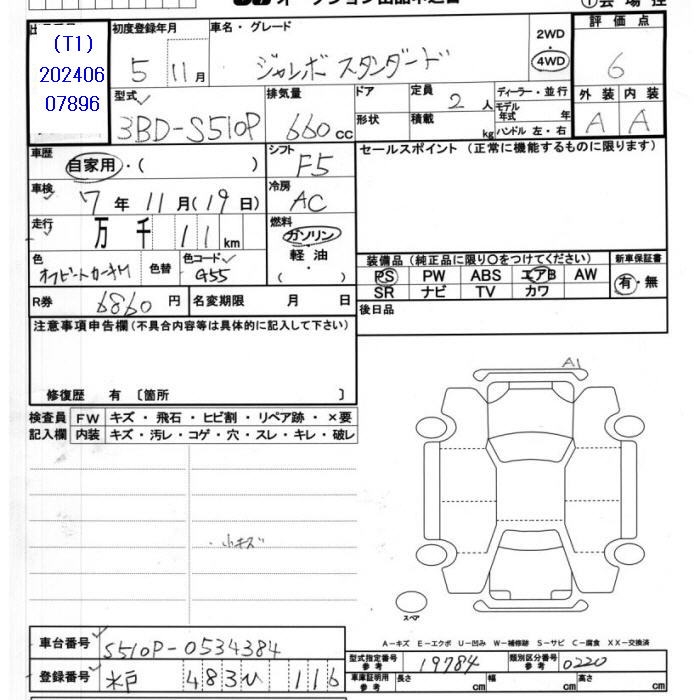 オークション出品申込書
①会場控
(T1)
202406
07896
初度登録年月 車名・グレード
5 11月 ジャンボ スタンダード
2WD
4WD
評価点
6
型式 排気量 ドア 定員 2 人 ディーラー・並行
モデル年式 年
3BD-S510P 660cc 形状 積載 kg ハンドル 左・右
外装 内装
A A
車歴 自家用・( ) シフト F5
セールスポイント (正常に機能するものに限ります)
車検 7年11月(19日) 冷房 AC
走行 万 千 11 km 燃料 ガソリン 軽油 ・( )
色 色替 色コード G55
装備品 (純正品に限り○をつけてください) 新車保証書
PS PW ABS エアB AW 有・無
SR ナビ TV カワ
R券 6860円 名変期限 月 日
後日品
注意事項申告欄(不具合内容等は具体的に記入して下さい)
修復歴 有 〔箇所 〕
A1
検査員 FW キズ・飛石・ヒビ割・リペア跡・×要
記入欄 内装 キズ・汚レ・コゲ・穴・スレ・キレ・破レ
・小キズ
スペア
A-キズ E-エクボ U-凹み W-補修跡 S-サビ C-腐食 XX-交換済
車台番号 S510P-0534384
型式指定番号 参考 19784 類別区分番号 参考 0220
登録番号 水戸 483ひ 116
車庫証明用 参考 長さ cm 幅 cm 高さ cm